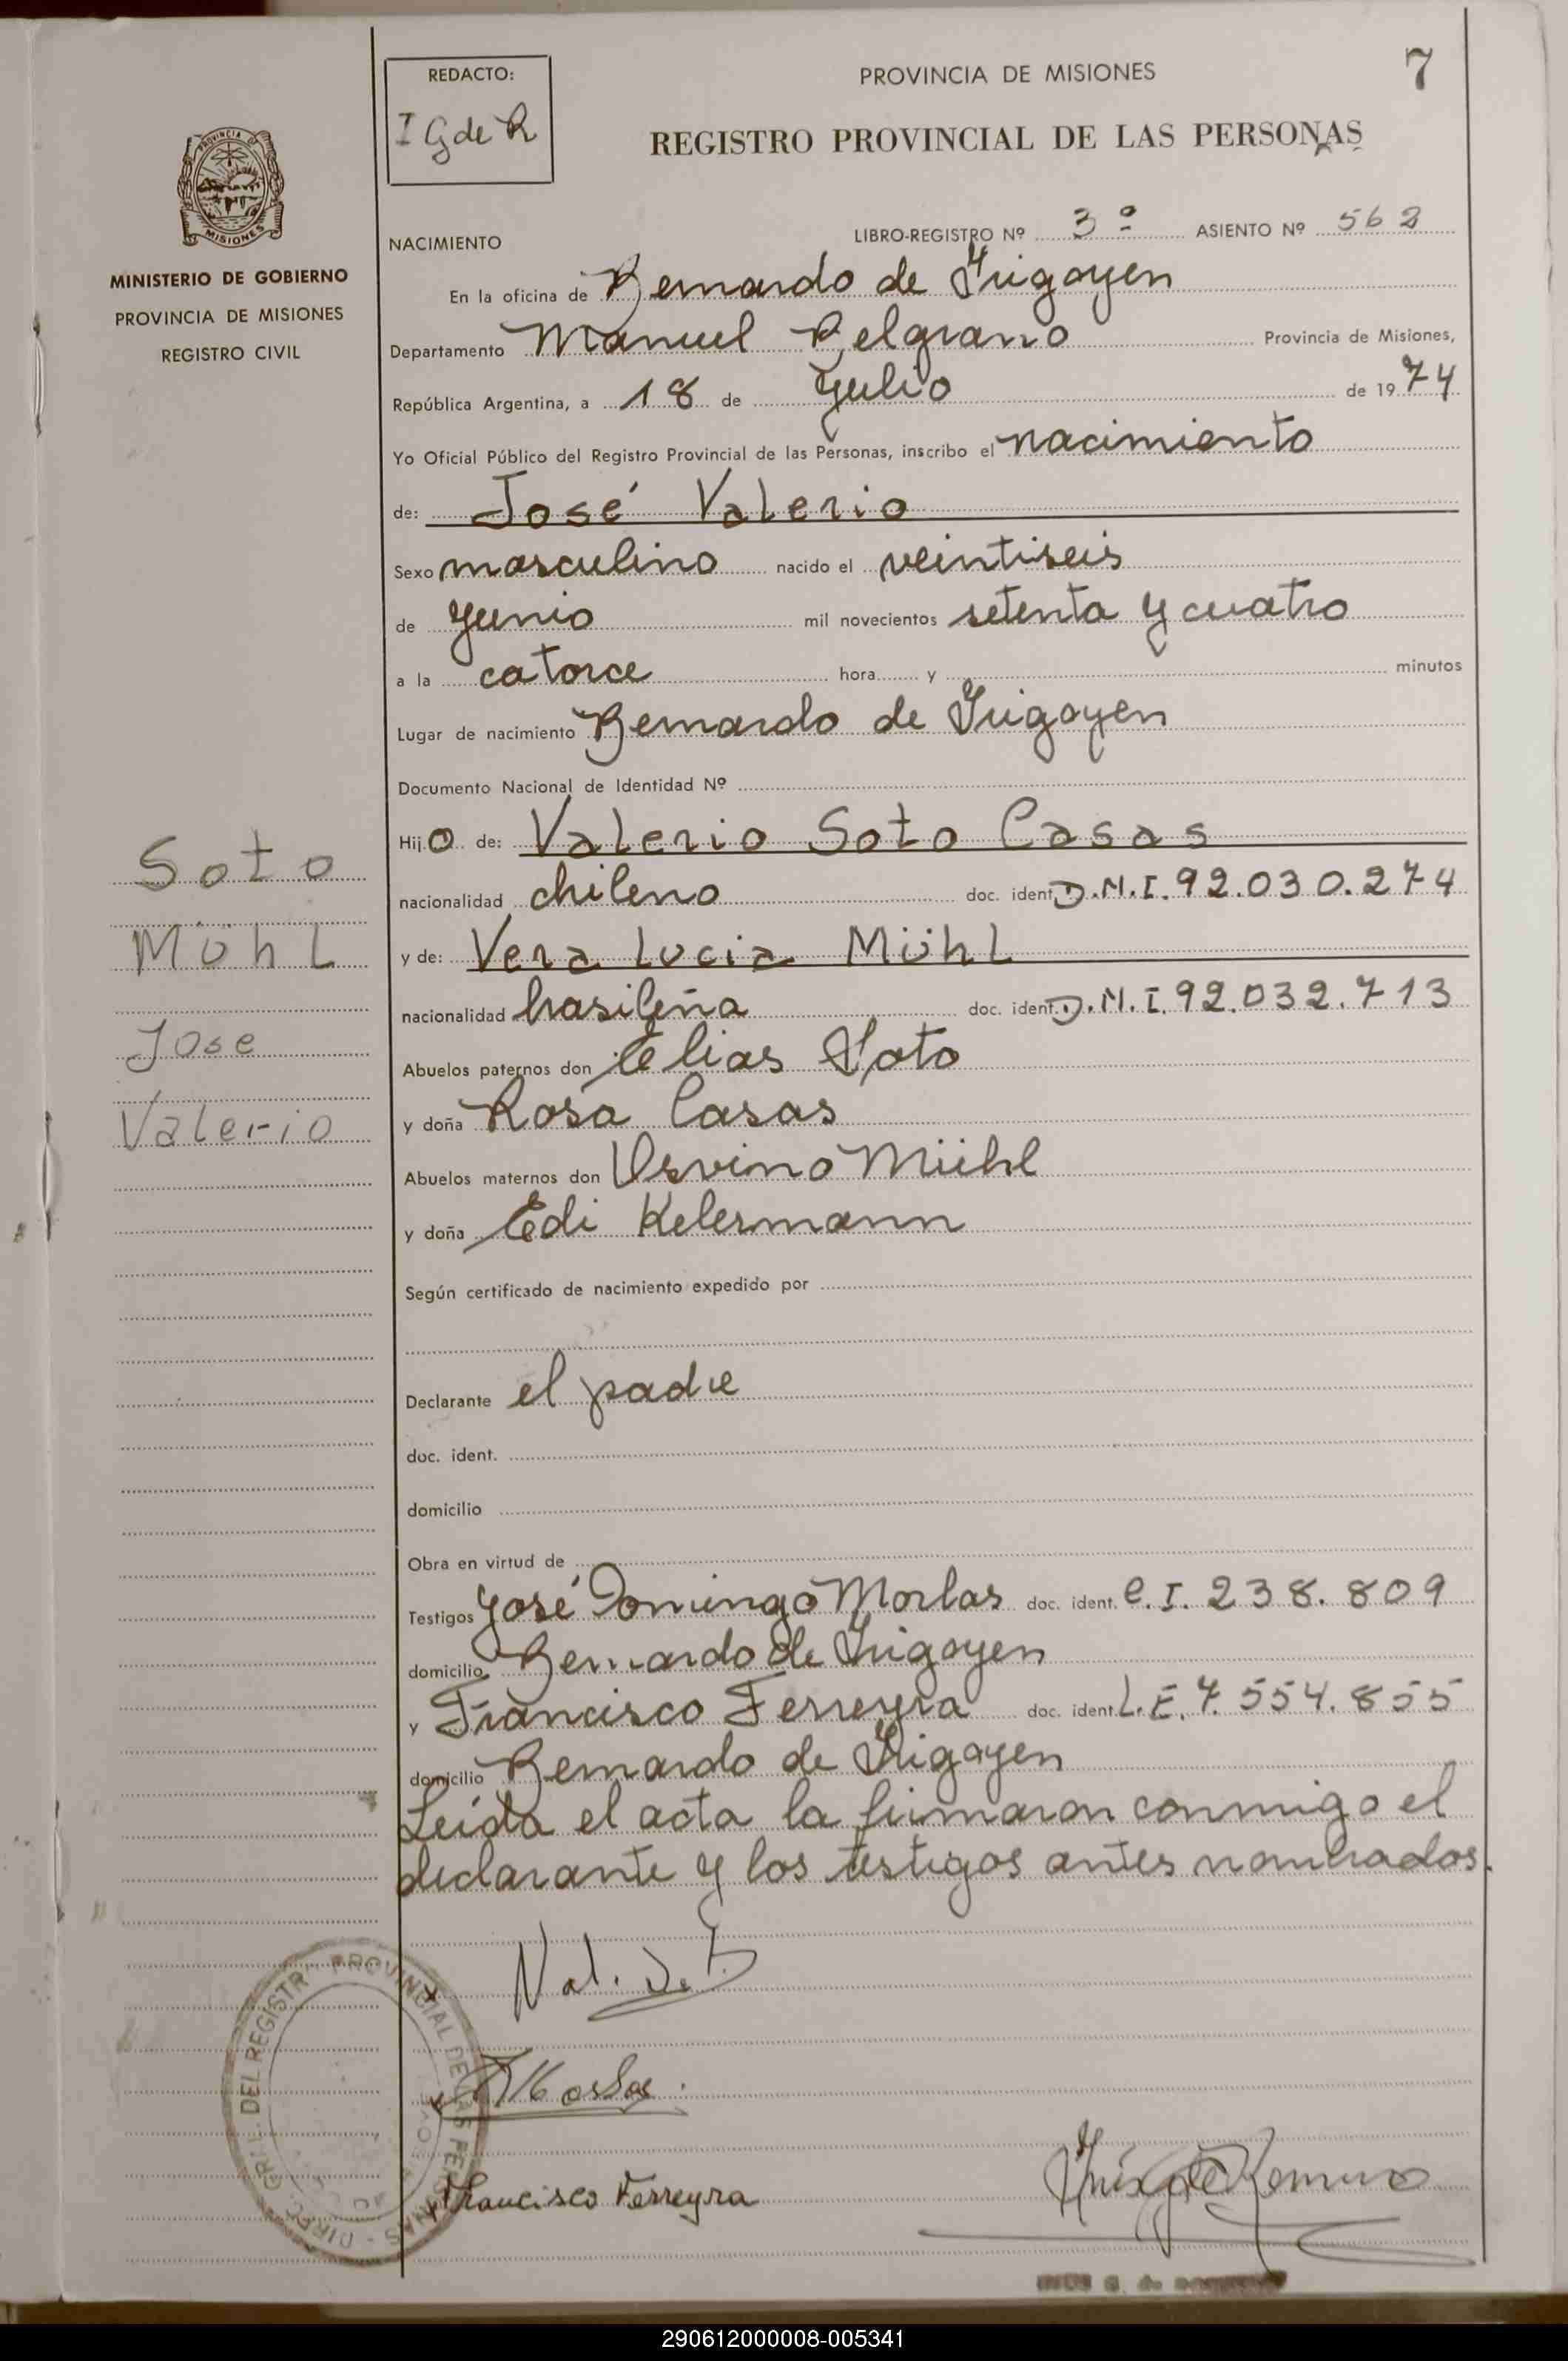 REDACTO:
I G de R
PROVINCIA DE MISIONES
7
REGISTRO PROVINCIAL DE LAS PERSONAS
PROVINCIA DE
MISIONES
MINISTERIO DE GOBIERNO
PROVINCIA DE MISIONES
REGISTRO CIVIL
NACIMIENTO
LIBRO-REGISTRO Nº 3º ASIENTO Nº 562
En la oficina de Bernardo de Irigoyen
Departamento Manuel Belgrano Provincia de Misiones,
República Argentina, a 18 de Julio de 1974
Yo Oficial Público del Registro Provincial de las Personas, inscribo el nacimiento
de: José Valerio
Sexo masculino nacido el veintiseis
de Junio mil novecientos setenta y cuatro
a la catorce hora y minutos
Lugar de nacimiento Bernardo de Irigoyen
Documento Nacional de Identidad Nº
Hijo de: Valerio Soto Casas
Soto
nacionalidad chileno doc. ident. D.N.I. 92.030.274
Mühl
y de: Vera Lucia Mühl
nacionalidad brasileña doc. ident. D.N.I. 92.032.713
Jose
Abuelos paternos don Elias Soto
Valerio
y doña Rosa Casas
Abuelos maternos don Osvino Mühl
y doña Edi Kelermann
Según certificado de nacimiento expedido por
Declarante el padre
doc. ident.
domicilio
Obra en virtud de
Testigos José Domingo Morlas doc. ident. C.I. 238.809
domicilio Bernardo de Irigoyen
y Francisco Ferreyra doc. ident. L.E. 7.554.855
domicilio Bernardo de Irigoyen
Leída el acta la firmaron conmigo el
declarante y los testigos antes nombrados.
DIREC. GRAL. DEL REGISTRO PROVINCIAL DE LAS PERSONAS
Francisco Ferreyra
290612000008-005341